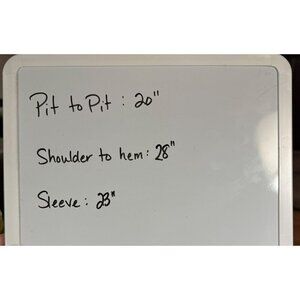 Pit to Pit : 20"
Shoulder to hem : 28"
Sleeve : 23"